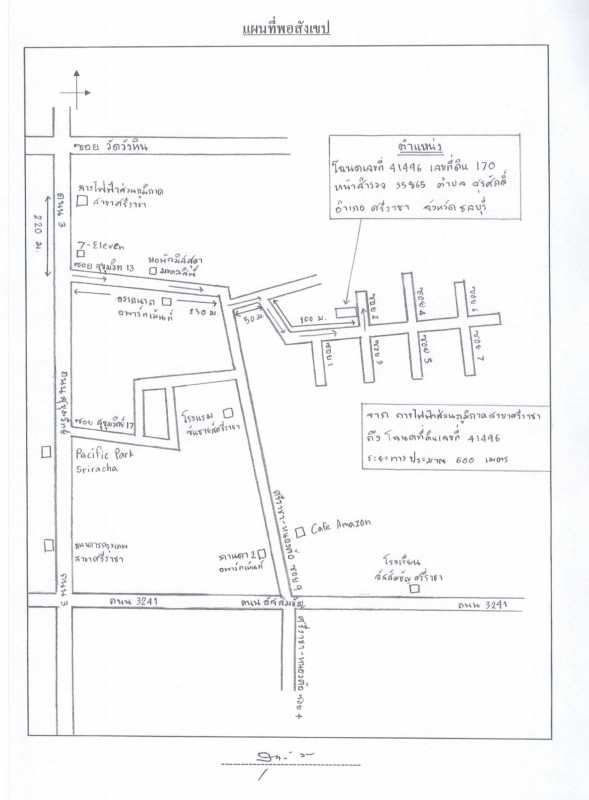 แผนที่พอสังเขป
ซอย วัดวังหิน
ตำแหน่ง
โฉนดเลขที่ 41496 เลขที่ดิน 170
หน้าสำรวจ 35865 ตำบล สุรศักดิ์
อำเภอ ศรีราชา จังหวัด ชลบุรี
การไฟฟ้าส่วนภูมิภาค
สาขาศรีราชา
ถนน 3
220 ม.
7-Eleven
ซอย สุขุมวิท 13
หอพัก
230 ม.
อพาร์ทเม้นท์
50 ม.
100 ม.
ซอย 2
ซอย 4
ซอย 6
ซอย 1
ซอย 3
ซอย 5
ซอย 7
ถนนสุขุมวิท
ซอย สุขุมวิท 17
โรงแรม
ซันชายน์ศรีราชา
Pacific Park
Sriracha
จาก การไฟฟ้าส่วนภูมิภาค สาขาศรีราชา
ถึง โฉนดที่ดินเลขที่ 41496
ระยะทางประมาณ 600 เมตร
ศรีราชา-หนองค้อ ซอย 9
Cafe Amazon
ธนาคารกรุงเทพ
สาขาศรีราชา
กานดา 2
อพาร์ทเม้นท์
โรงเรียน
อัสสัมชัญ ศรีราชา
ถนน 3
ถนน 3241
ถนน อัสสัมชัญ
ถนน 3241
ศรีราชา-หนองค้อ ซอย 4